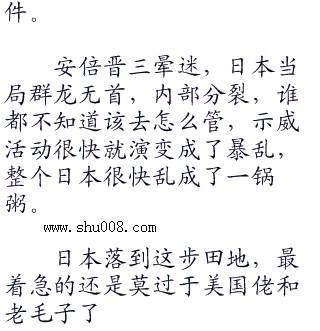 件。
安倍晋三晕迷，日本当
局群龙无首，内部分裂，谁
都不知道该去怎么管，示威
活动很快就演变成了暴乱，
整个日本很快乱成了一锅
粥。
www.shu008.com
日本落到这步田地，最
着急的还是莫过于美国佬和
老毛子了